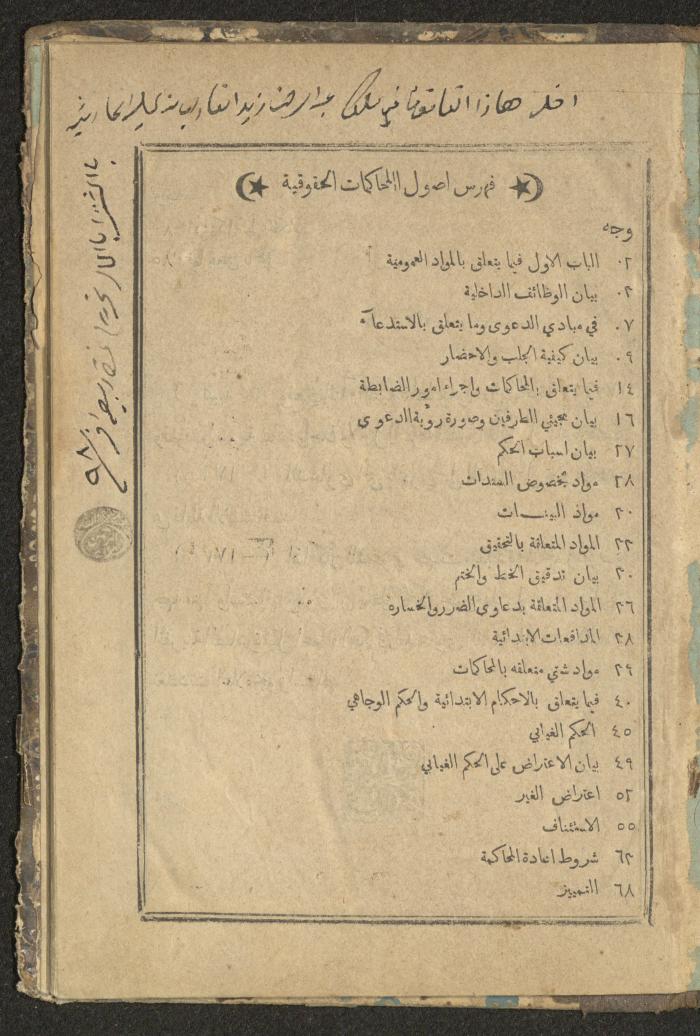 فهرس اصول المحاكمات الحقوقية
وجه
٠٢ الباب الاول فيما يتعلق بالمواد العمومية
٠٢ بيان الوظائف الداخلية
٠٧ في مبادي الدعوى وما يتعلق بالاستدعآء
٠٩ بيان كيفية الجلب والاحضار
١٤ فيما يتعلق بالمحاكمات واجراء امور الضابطة
١٦ بيان مجيئي الطرفين وصورة رؤية الدعوى
٢٧ بيان اسباب الحكم
٢٨ مواد بخصوص السندات
٢٠ مواد البينات
٢٢ المواد المتعلقة بالتحقيق
٢٠ بيان تدقيق الخط والختم
٢٦ المواد المتعلقة بدعاوى الضرر والخساره
٢٨ المدافعات الابتدائية
٢٩ مواد شتي متعلقه بالمحاكمات
٤٠ فيما يتعلق بالاحكام الابتدائية والحكم الوجاهي
٤٥ الحكم الغيابي
٤٩ بيان الاعتراض على الحكم الغيابي
٥٢ اعتراض الغير
٥٥ الاستئناف
٦٢ شروط اعادة المحاكمة
٦٨ التمييز